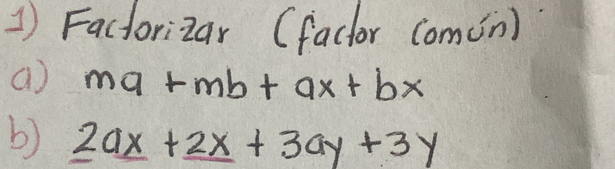 1) Factorizar (factor común)
a) ma + mb + ax + bx
b) 2ax + 2x + 3ay + 3y